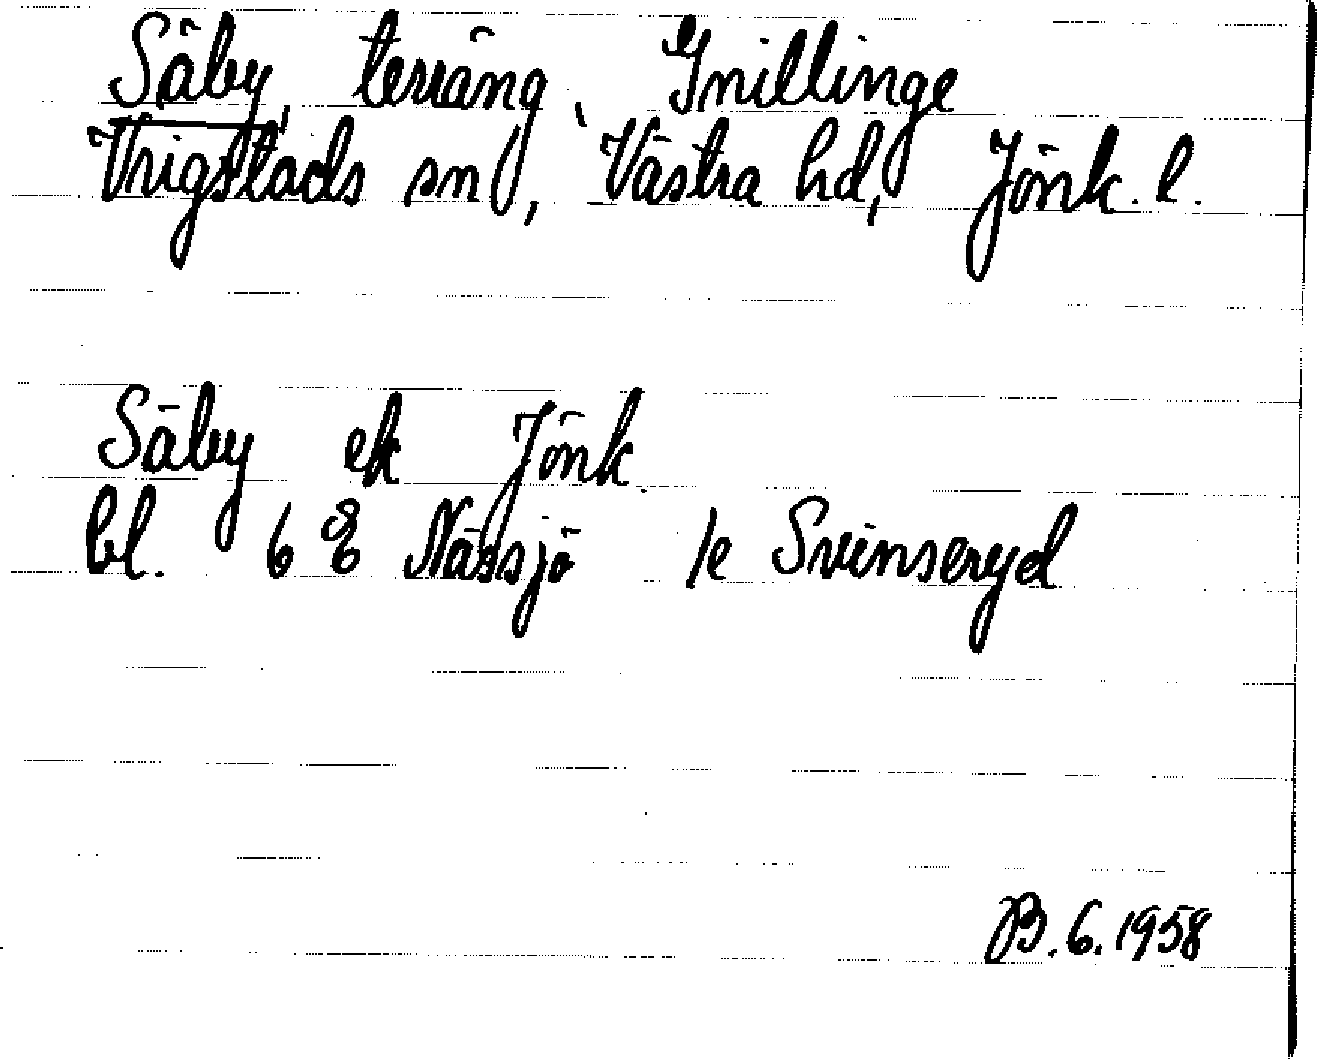 Säby, terräng, Gnillinge
Vrigstads sn, Västra hd, Jönk. l.
Säby ek Jönk.
bl. 6 E Nässjö /e Svenseryd
B. 6. 1958